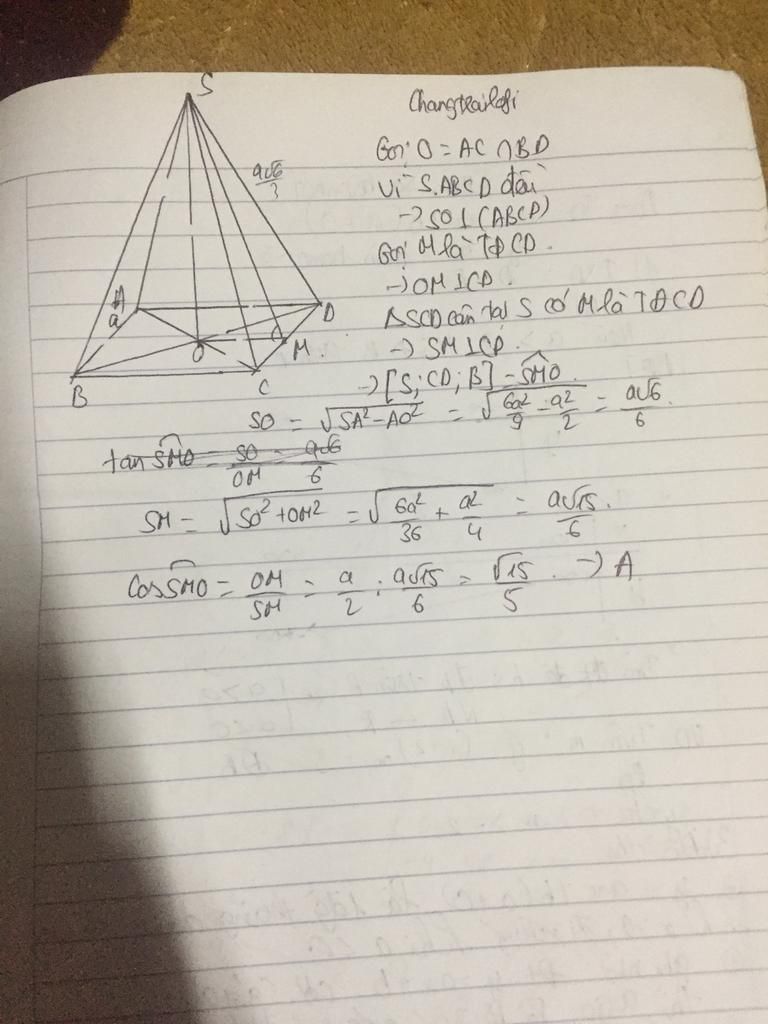 S
a√6/3
A
a
B
C
D
M
O
Gọi O = AC ∩ BD
Vì S.ABCD đều
→ SO ⊥ (ABCD)
Gọi M là TĐ CD.
→ OM ⊥ CD.
ΔSCD cân tại S có M là TĐ CD
→ SM ⊥ CD.
→ [S; CD; B] = SMO
SO = √(SA² - AO²) = √(6a²/9 - a²/2) = a√6/6.
tan SMO = SO/OM = a√6/6
SM = √(SO² + OM²) = √(6a²/36 + a²/4) = a√15/6.
Cos SMO = OM/SM = a/2 : a√15/6 = √15/5. → A